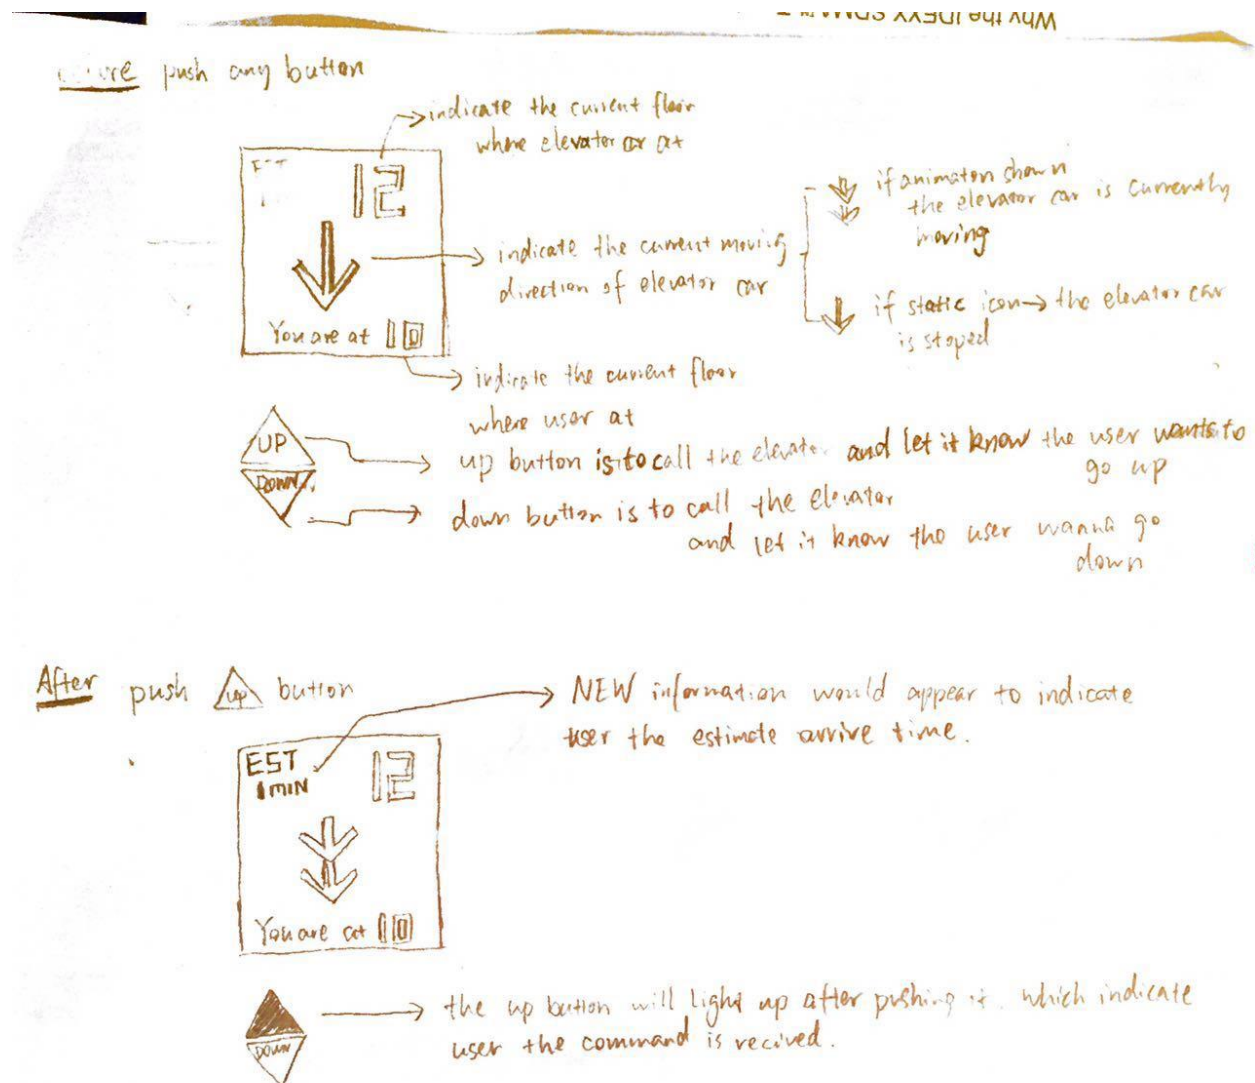 Why the IDEXX SDMA
push any button
indicate the current floor
where elevator car at
12
if animaton shown
the elevator car is currently
moving
indicate the current moving
direction of elevator car
if static icon→ the elevator car
is stoped
You are at 10
indicate the current floor
where user at
UP
up button is to call the elevator and let it know the user wants to
go up
DOWN
down button is to call the elevator
and let it know the user wanna go
down
After push up button
NEW information would appear to indicate
user the estimate arrive time.
EST 12
1 MIN
You are at 10
the up button will light up after pushing it. which indicate
user the command is recived.
DOWN